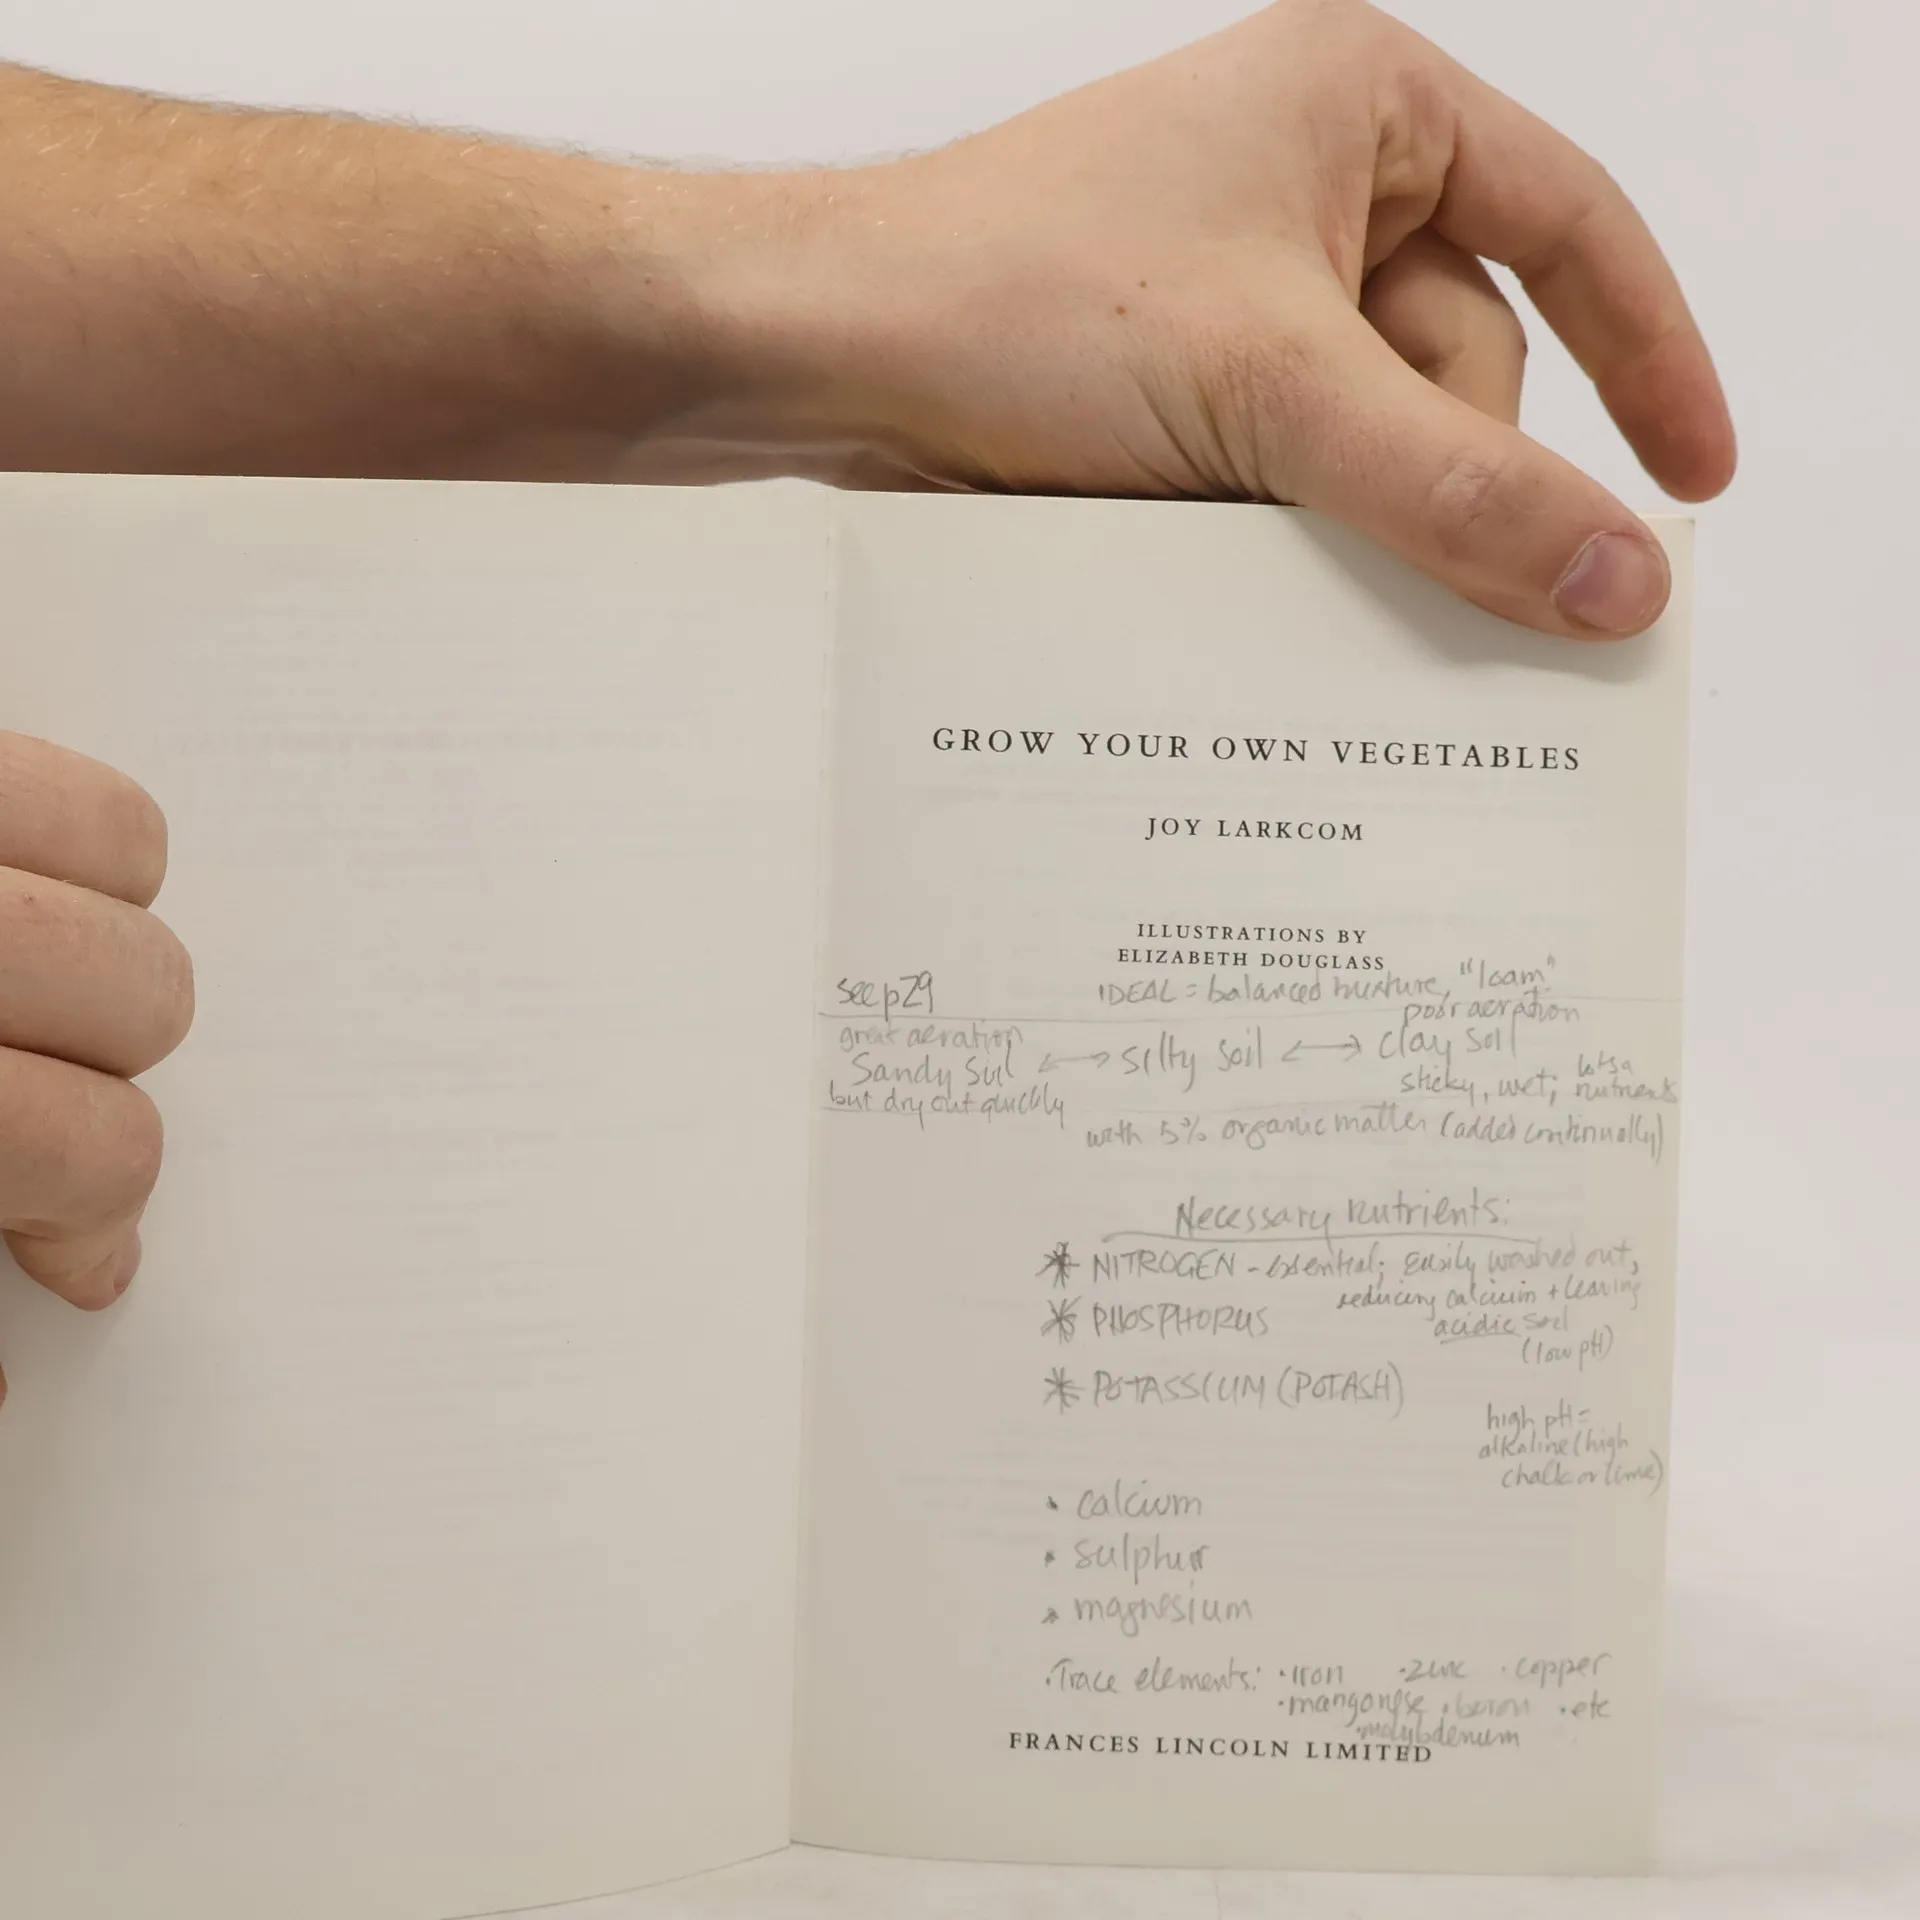 GROW YOUR OWN VEGETABLES
JOY LARKCOM
ILLUSTRATIONS BY
ELIZABETH DOUGLASS
see p29
IDEAL = balanced mixture, "loam"
poor aeration
great aeration
Sandy Soil <--> silty soil <--> clay soil
but dry out quickly
sticky, wet; lotsa
nutrients
with 5% organic matter (added continually)
Necessary nutrients:
* NITROGEN - essential; easily washed out,
reducing calcium + leaving
acidic soil
(low pH)
* PHOSPHORUS
* POTASSIUM (POTASH)
high pH =
alkaline (high
chalk or lime)
• calcium
• sulphur
• magnesium
• Trace elements: • iron • zinc • copper
• manganese • boron • etc
• molybdenum
FRANCES LINCOLN LIMITED